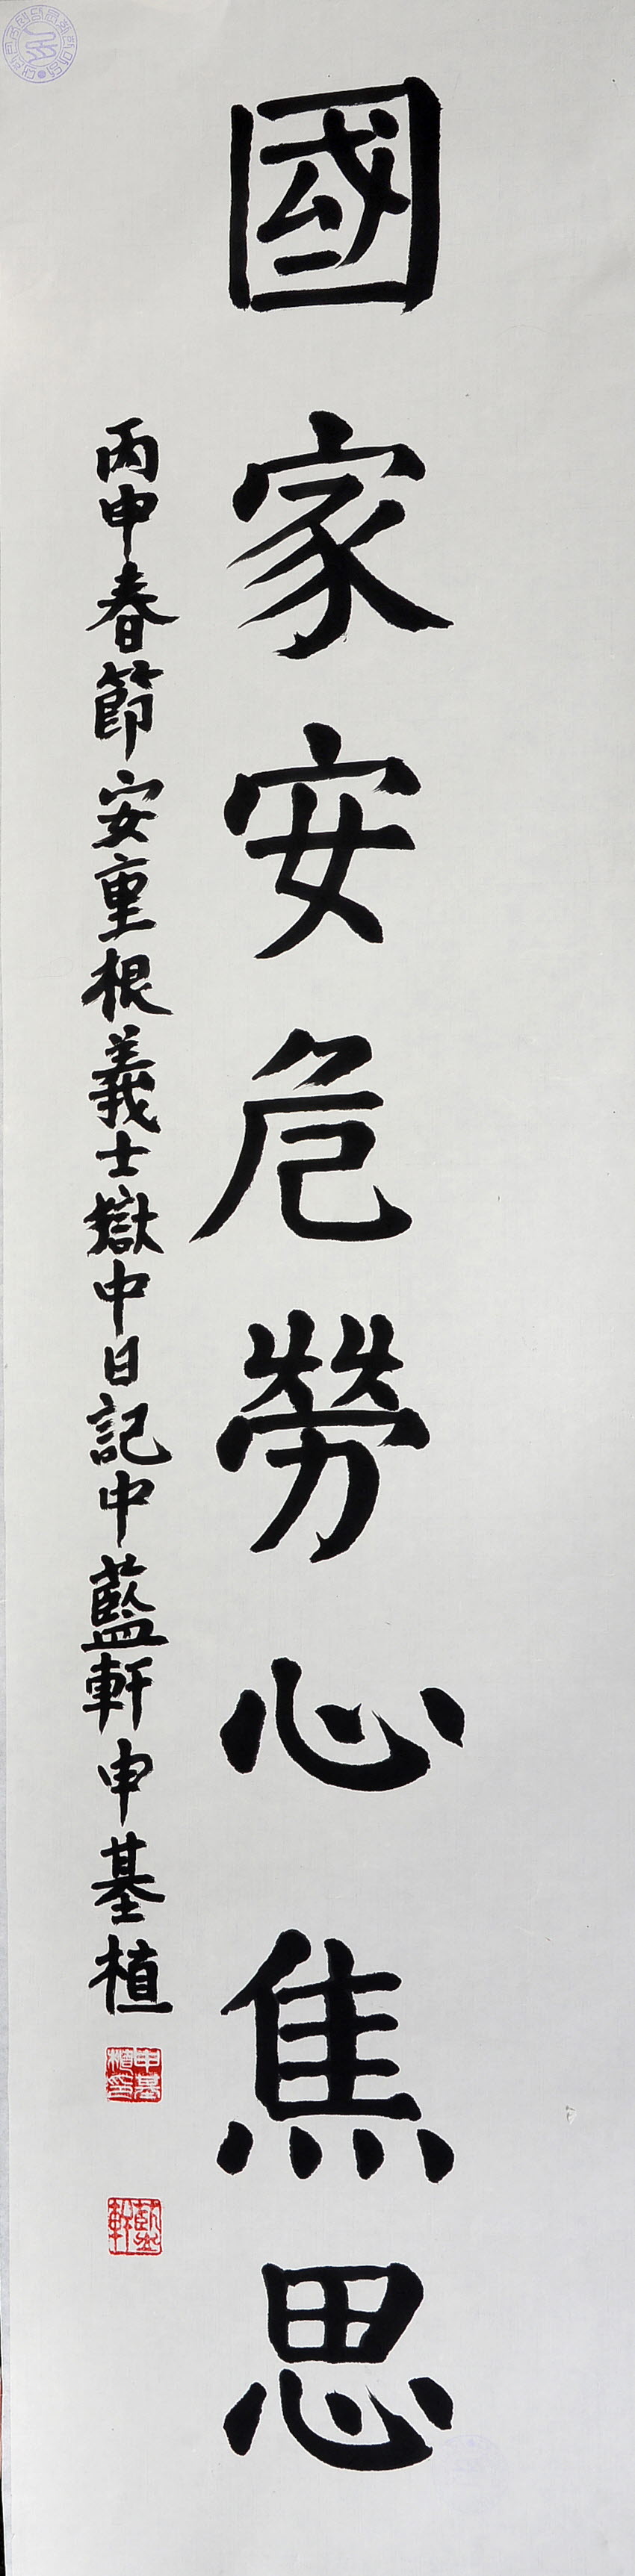 國家安危勞心焦思
丙申春節安重根義士獄中日記中藍軒申基植
申基植印
藍軒